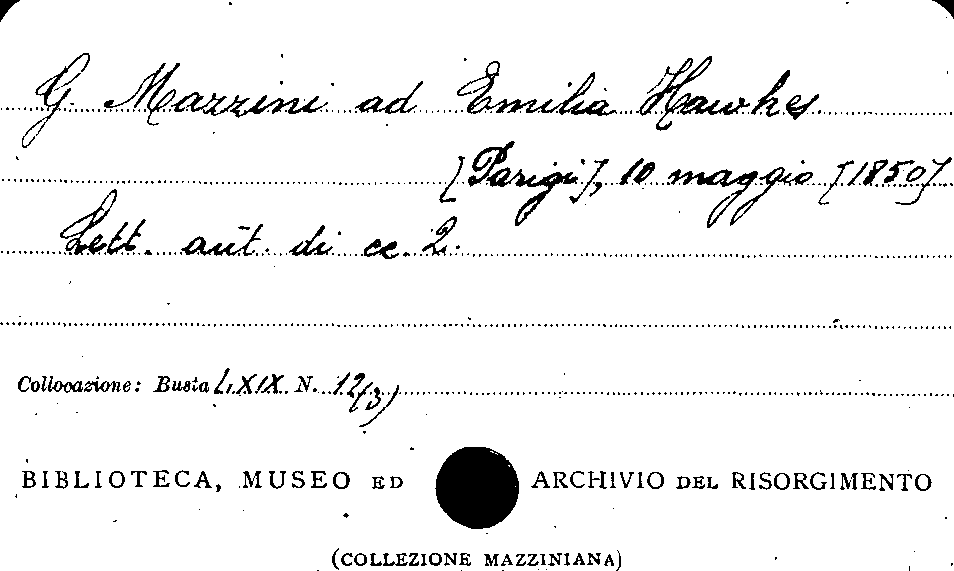 G. Mazzini ad Emilia Hawkes
[Parigi], 10 maggio [1850]
Lett. aut. di cc. 2.
Collocazione: Busta LXIX N. 12(3)
BIBLIOTECA, MUSEO ED ARCHIVIO DEL RISORGIMENTO
(COLLEZIONE MAZZINIANA)